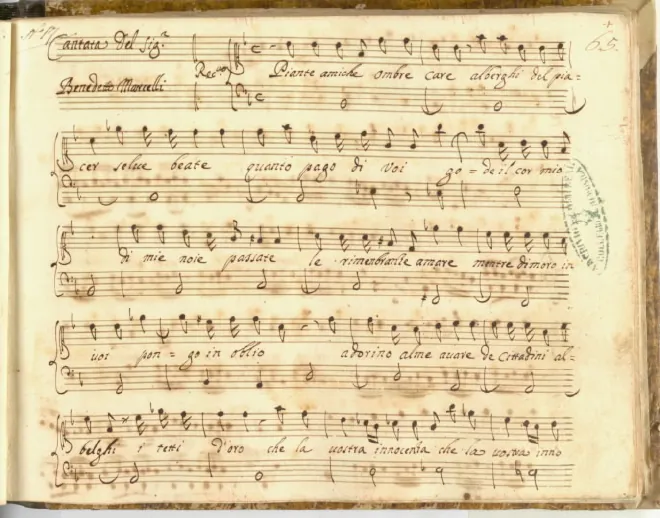 Cantata Del Sig.r
65.
Benedetto Marcelli
Rec.vo
Piante amiche ombre care alberghi del pia=
cer selve beate quanto pago di voi go=de il cor mio
di mie noie passate le rimenbranze amare mentre dimoro in
voi pon=go in oblio adorino alme avare de Cittadini al=
belghi i tetti d'oro che la vostra innocenza che la vostra inno